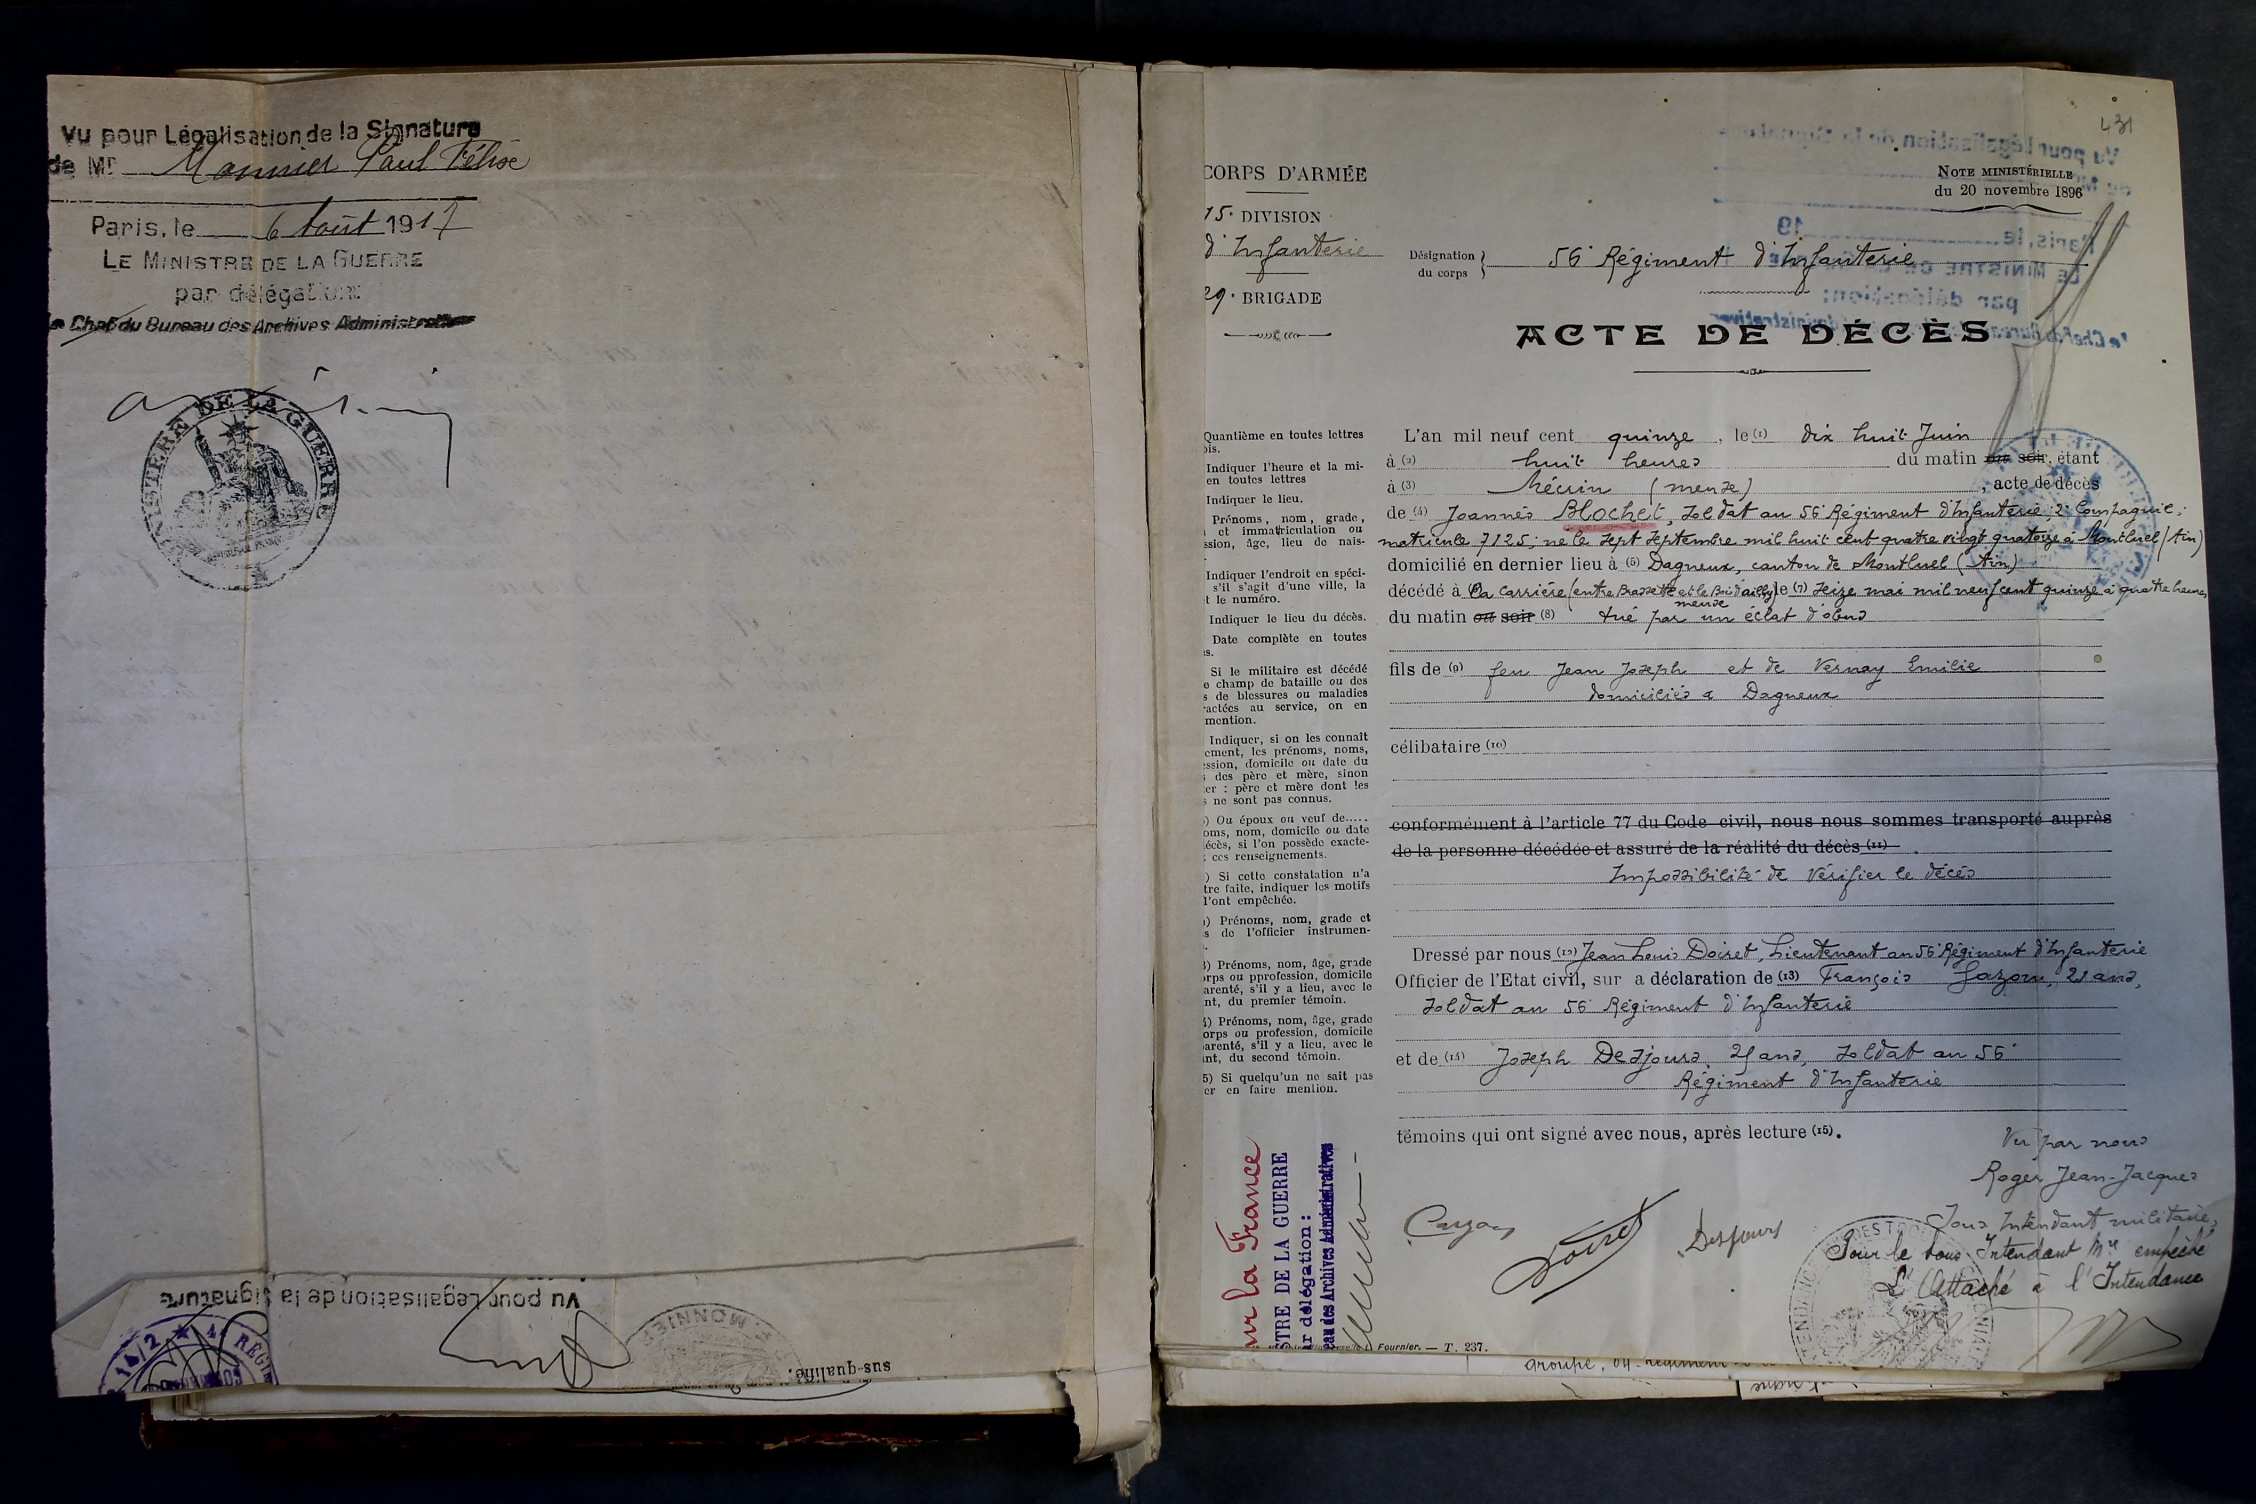 Vu pour Légalisation de la Signature
de Mr Monnier Paul Félise
Paris, le 6 Août 1917
LE MINISTRE DE LA GUERRE
par délégation:
Le Chef du Bureau des Archives Administratives
MINISTERE DE LA GUERRE
Vu pour Légalisation de la Signature
MONNIER
sus-qualifié.
431
CORPS D'ARMÉE
15e DIVISION
d'Infanterie
29e BRIGADE
NOTE MINISTÉRIELLE
du 20 novembre 1896
Désignation du corps } 56e Régiment d'Infanterie
Vu pour Légalisation de la Signature
Paris, le 19
LE MINISTRE DE LA GUERRE
par délégation:
Le Chef du Bureau des Archives Administratives
ACTE DE DÉCÈS
L'an mil neuf cent quinze, le (1) dix huit Juin
à (2) huit heures du matin ou soir, étant
à (3) Mécrin (meuse), acte de décès
de (4) Joannès Blochet, soldat au 56e Régiment d'Infanterie, 2e Compagnie;
matricule 7125; né le sept septembre mil huit cent quatre vingt quatorze à Montluel (Ain)
domicilié en dernier lieu à (5) Dagneux, canton de Montluel (Ain)
décédé à La Carrière (entre Brassette et le Bois d'ailly) le (7) seize mai mil neuf cent quinze à quatre heures
meuse
du matin ou soir (8) tué par un éclat d'obus
fils de (9) feu Jean Joseph et de Vernay Emilie
domiciliés à Dagneux
célibataire (10)
conformément à l'article 77 du Code civil, nous nous sommes transporté auprès
de la personne décédée et assuré de la réalité du décès (11).
Impossibilité de vérifier le décès
Dressé par nous (12) Jean Louis Doiret, Lieutenant au 56e Régiment d'Infanterie
Officier de l'Etat civil, sur a déclaration de (13) François 21 ans,
soldat au 56e Régiment d'Infanterie
et de (14) Joseph Desjours, ans, soldat au 56e
Régiment d'Infanterie
témoins qui ont signé avec nous, après lecture (15).
Quantième en toutes lettres
ois.
Indiquer l'heure et la mi-
en toutes lettres
Indiquer le lieu.
Prénoms, nom, grade,
et immatriculation ou
ssion, âge, lieu de nais-
Indiquer l'endroit en spéci-
s'il s'agit d'une ville, la
t le numéro.
Indiquer le lieu du décès.
Date complète en toutes
s.
Si le militaire est décédé
e champ de bataille ou des
s de blessures ou maladies
ractées au service, on en
mention.
Indiquer, si on les connaît
ement, les prénoms, noms,
ession, domicile ou date du
s des père et mère, sinon
er : père et mère dont les
s ne sont pas connus.
) Ou époux ou veuf de.....
oms, nom, domicile ou date
écès, si l'on possède exacte-
t ces renseignements.
) Si cette constatation n'a
tre faite, indiquer les motifs
l'ont empêchée.
) Prénoms, nom, grade et
s de l'officier instrumen-
3) Prénoms, nom, âge, grade
orps ou pprofession, domicile
arenté, s'il y a lieu, avec le
nt, du premier témoin.
4) Prénoms, nom, âge, grade
orps ou profession, domicile
arenté, s'il y a lieu, avec le
nt, du second témoin.
5) Si quelqu'un ne sait pas
er en faire mention.
ur la France
STRE DE LA GUERRE
r délégation :
eau des Archives Administratives
Doiret
Desjours
Vu par nous
Roger Jean-Jacques
Sous Intendant militaire,
Pour le Sous-Intendant Mre empêché
L'Attaché à l'Intendance
Fournier. — T. 237.